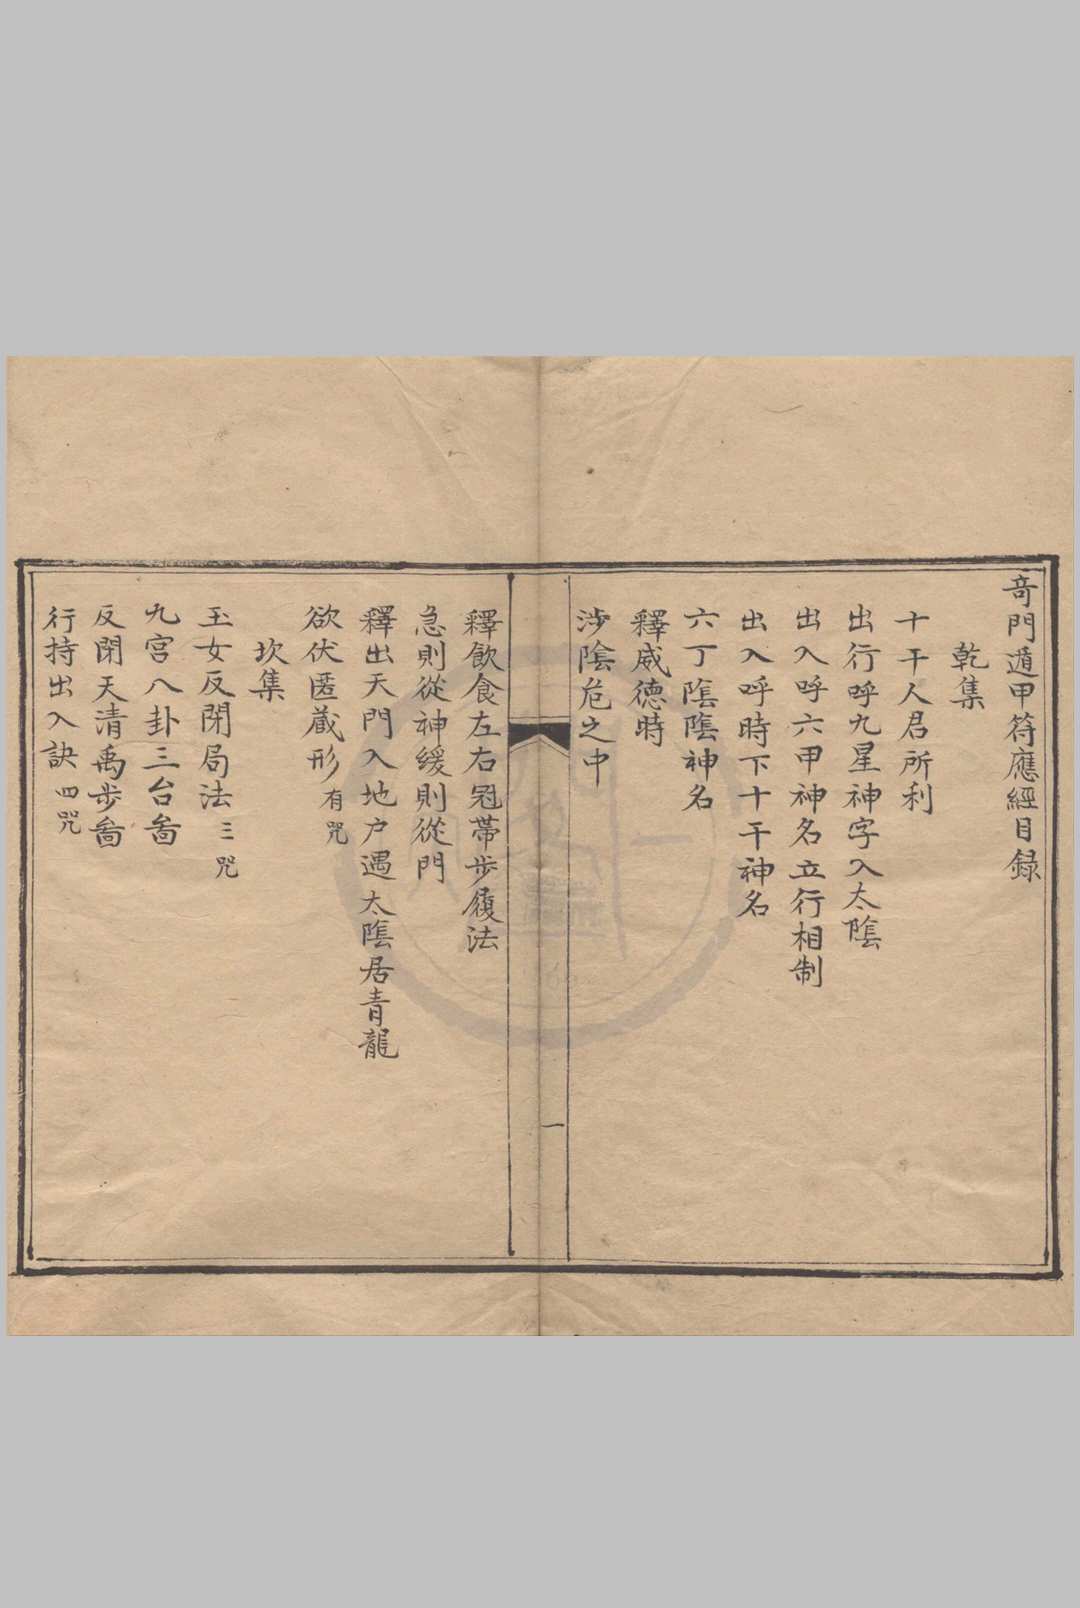 奇門遁甲符應經目録
乾集
十干人君所利
出行呼九星神字入太隂
出入呼六甲神名立行相制
出入呼時下十干神名
六丁隂隂神名
釋威德時
涉隂危之中
一
釋飲食左右冠帶步履法
急則從神緩則從門
釋出天門入地户遇太隂居青龍
欲伏匿蔵形有咒
坎集
玉女反閉局法三咒
九宫八卦三台啚
反閉天清禹步啚
行持出入訣四咒